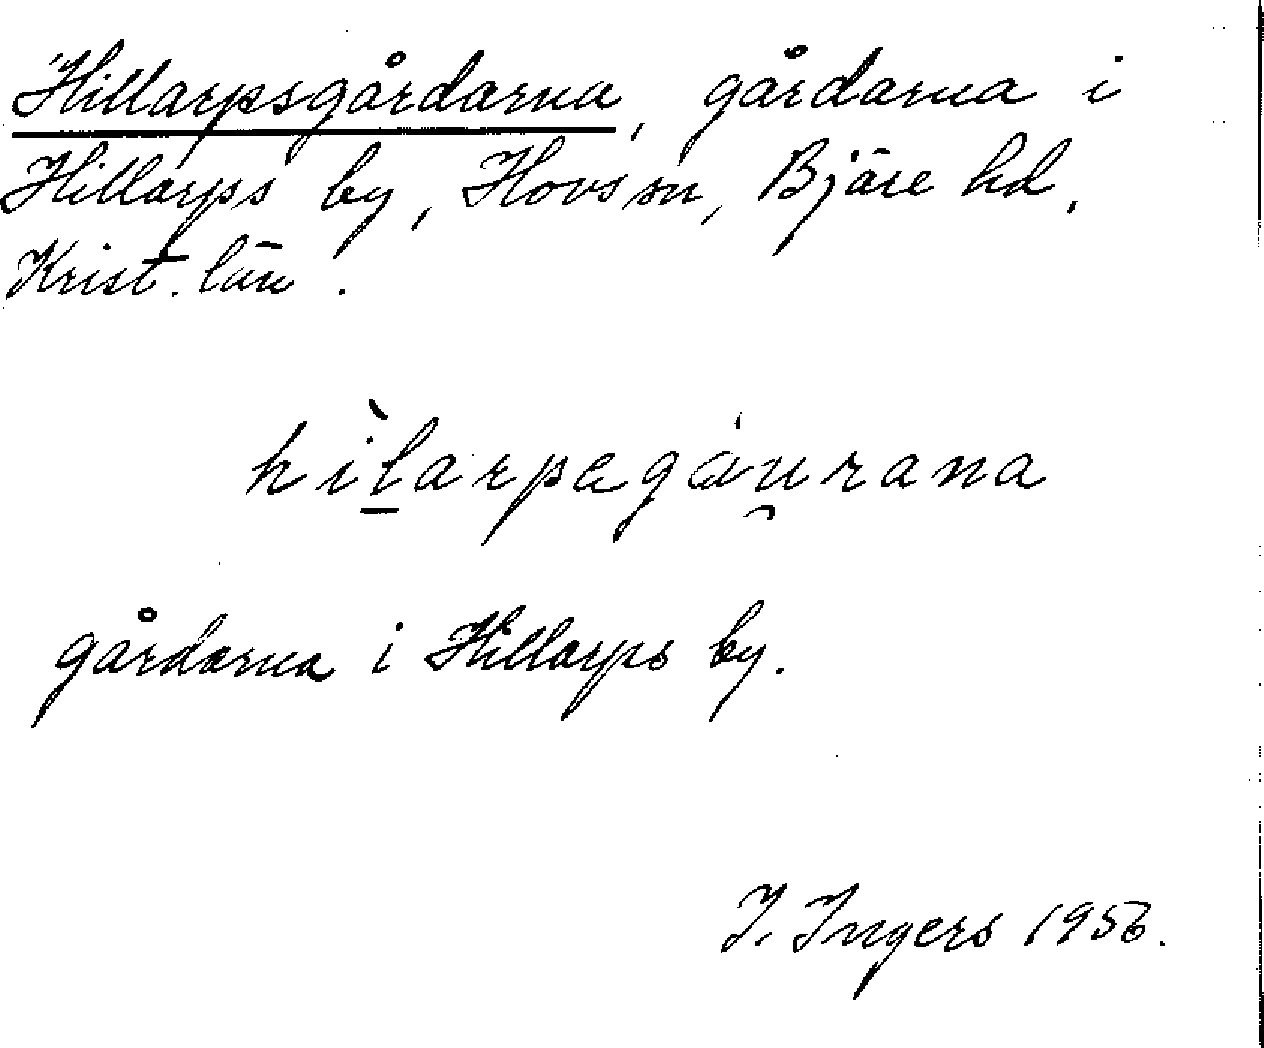 Hillarpsgårdarna, gårdarna i
Hillarps by, Hovs sn, Bjäre hd,
Krist. län.
hìlarpagáu̯rana
gårdarna i Hillarps by.
I. Ingers 1956.